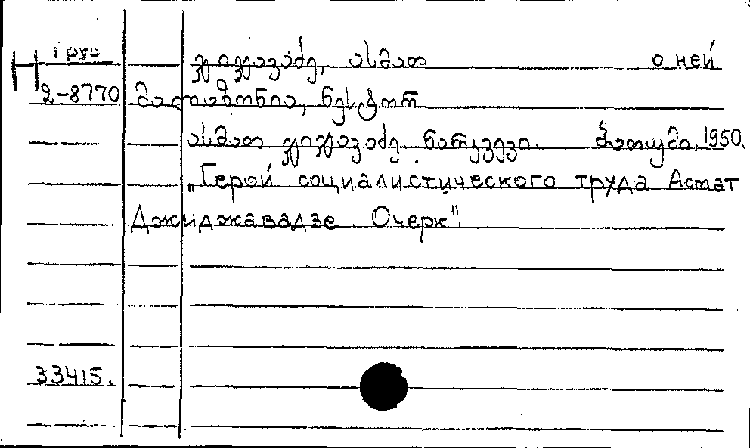 Груз
ჯიჯავაძე, ასმათ о ней
Н 2-8770 მალაზონია, ნესტორ
ასმათ ჯიჯავაძე. ნარკვევი. ბათუმი, 1950.
„Герой социалистического труда Асмат
Джиджавадзе Очерк"
33415.